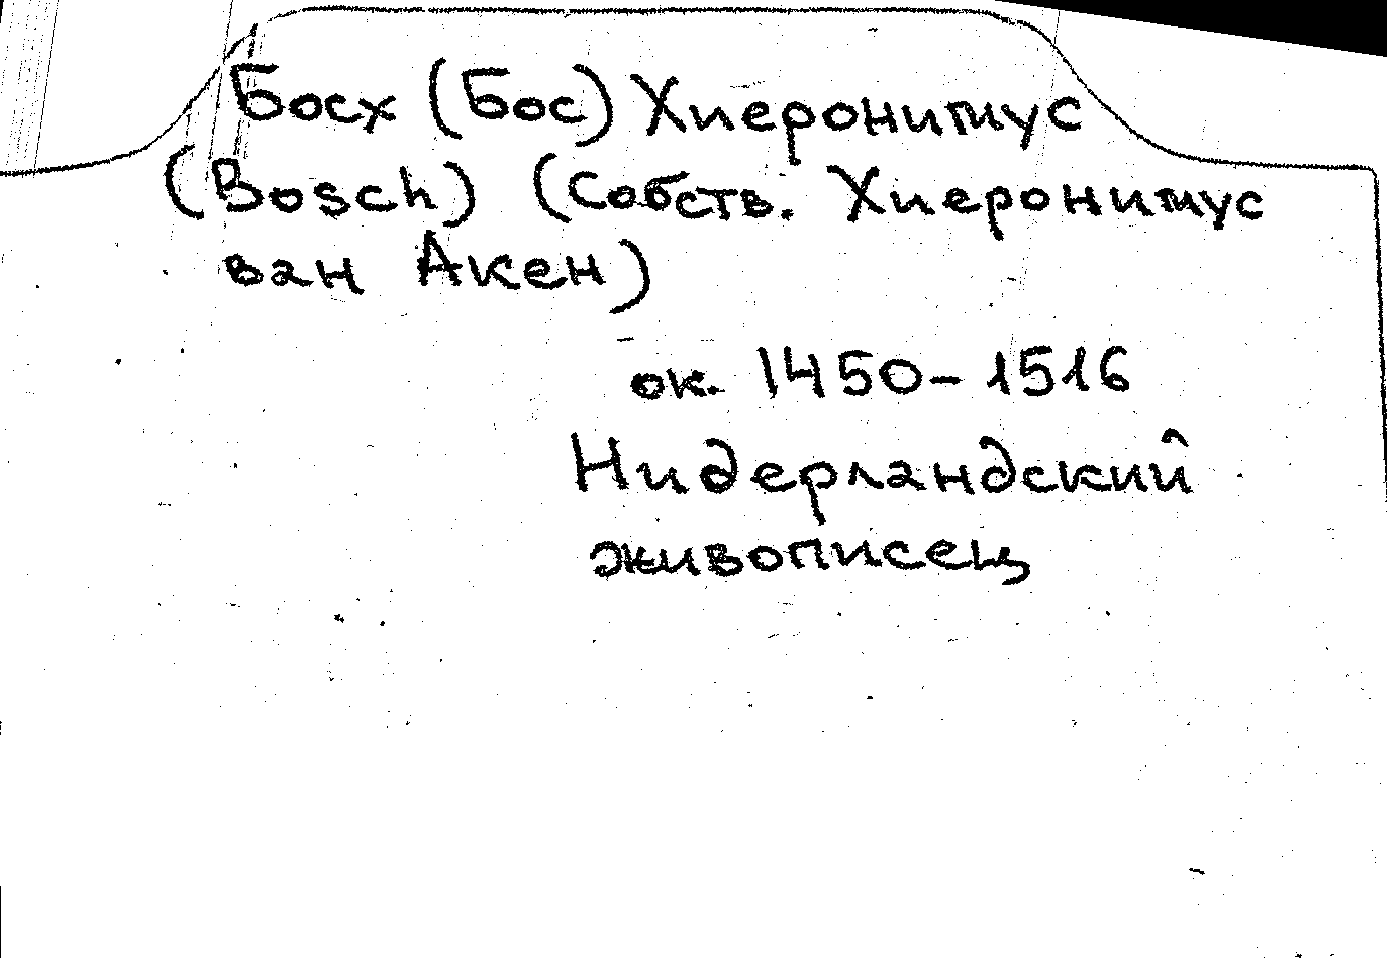 Босх (Бос) Хиеронимус
(Bosch) (Собств. Хиеронимус
ван Акен)
ок. 1450-1516
Нидерландский
живописец